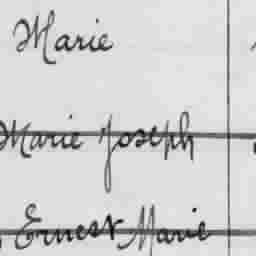 Marie
Marie Joseph
Ernest Marie